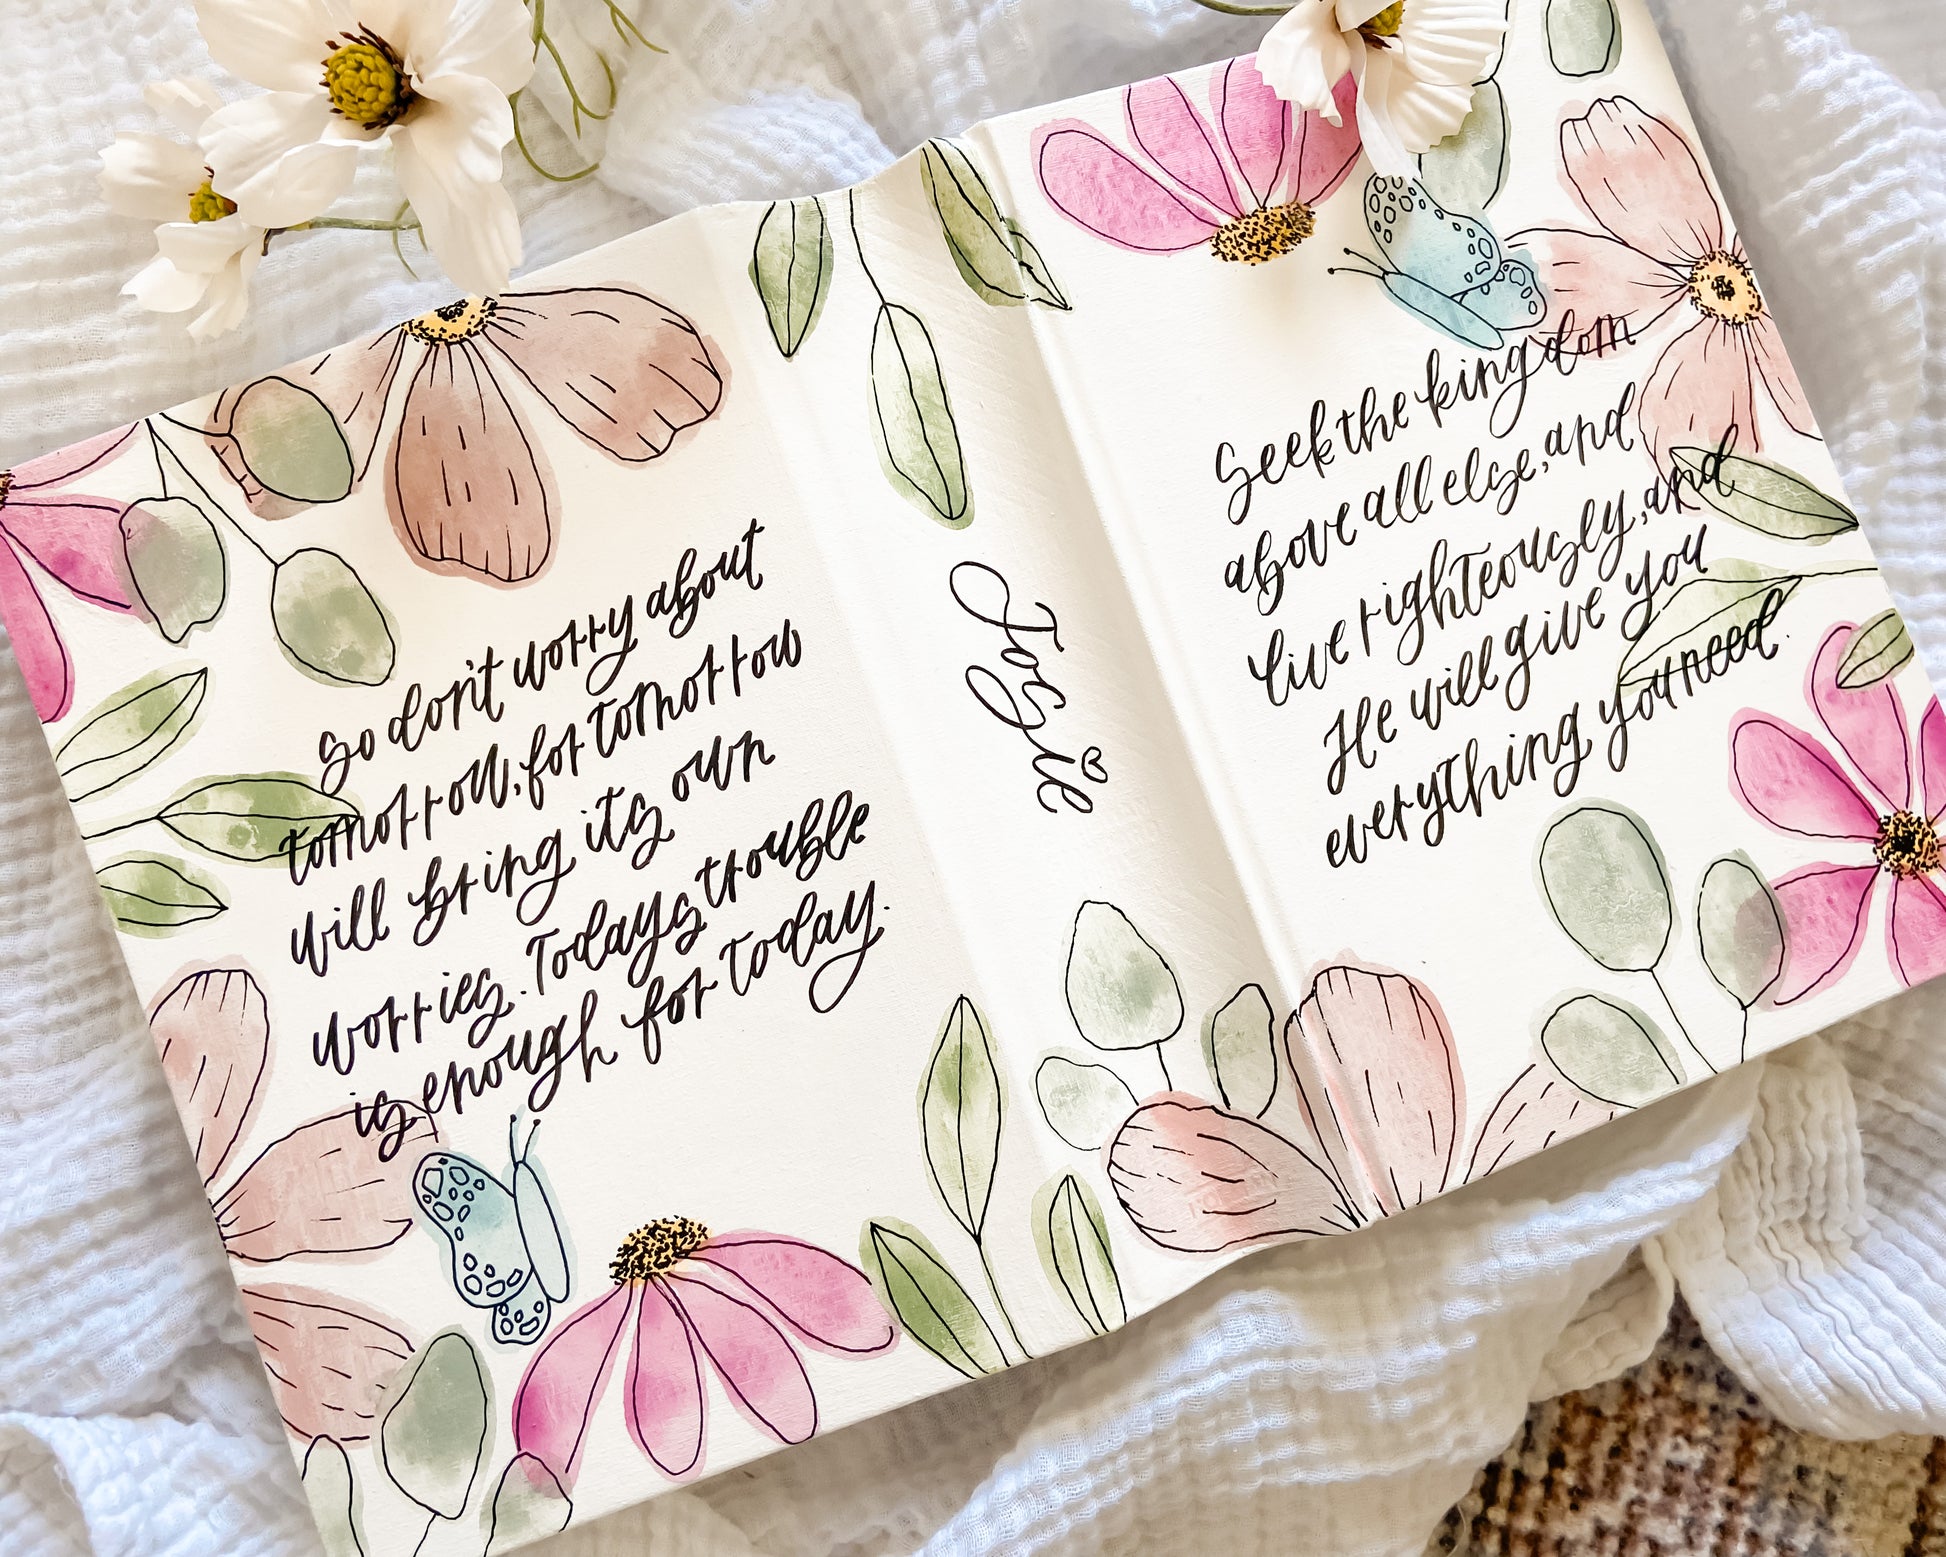 So don't worry about
tomorrow, for tomorrow
will bring its own
worries. Todays trouble
is enough for today.
Josie
Seek the kingdom
above all else, and
live righteously, and
He will give you
everything you need.